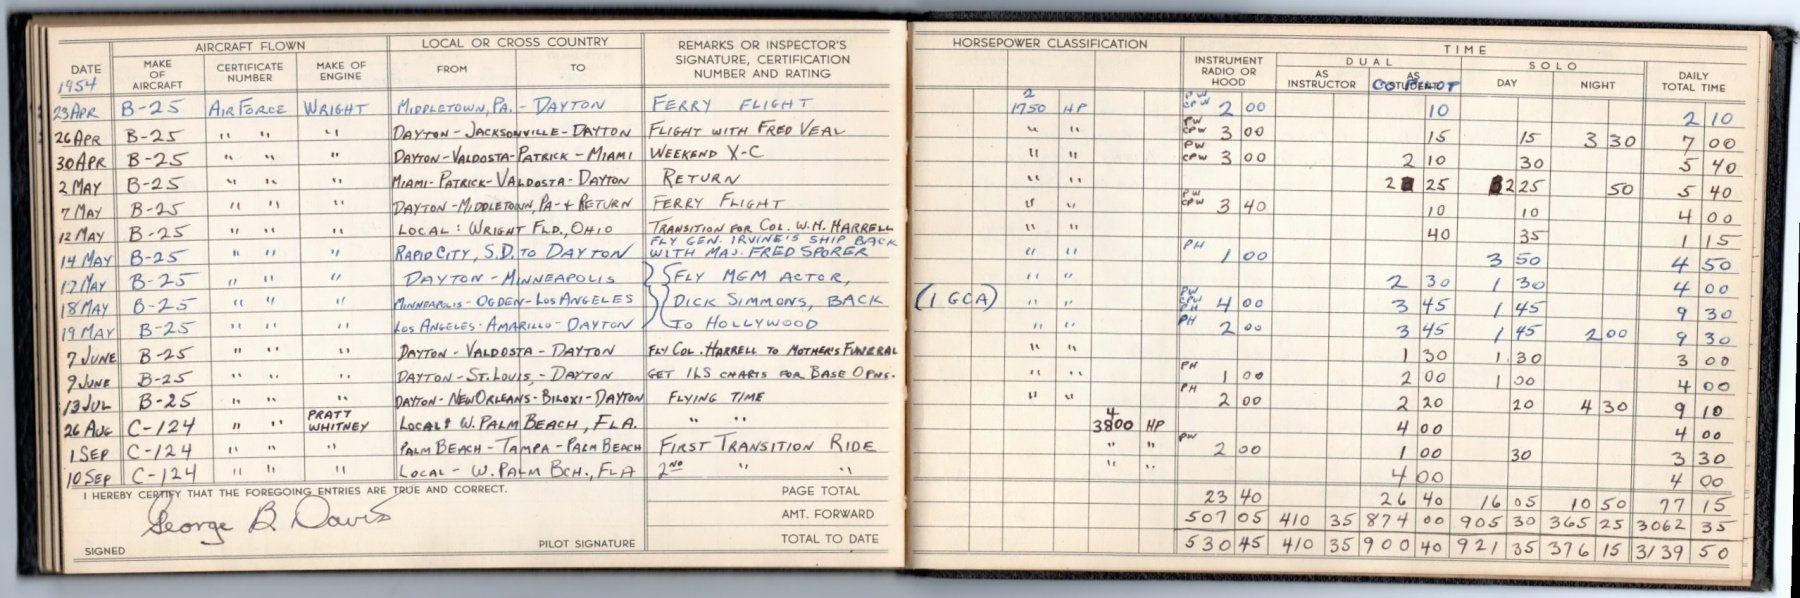 AIRCRAFT FLOWN LOCAL OR CROSS COUNTRY REMARKS OR INSPECTOR'S SIGNATURE, CERTIFICATION NUMBER AND RATING HORSEPOWER CLASSIFICATION TIME
DATE 1954 MAKE OF AIRCRAFT CERTIFICATE NUMBER MAKE OF ENGINE FROM TO INSTRUMENT RADIO OR HOOD DUAL AS INSTRUCTOR AS STUDENT COPILOT SOLO DAY NIGHT DAILY TOTAL TIME
23 APR B-25 AIR FORCE WRIGHT MIDDLETOWN, PA. - DAYTON FERRY FLIGHT 2 1750 HP PW CPW 2 00 10 2 10
26 APR B-25 " " " DAYTON - JACKSONVILLE - DAYTON FLIGHT WITH FRED VEAL " " PW CPW 3 00 15 15 3 30 7 00
30 APR B-25 " " " DAYTON - VALDOSTA - PATRICK - MIAMI WEEKEND X-C " " PW CPW 3 00 2 10 30 5 40
2 MAY B-25 " " " MIAMI - PATRICK - VALDOSTA - DAYTON RETURN " " 2 25 2 25 50 5 40
7 MAY B-25 " " " DAYTON - MIDDLETOWN, PA - & RETURN FERRY FLIGHT " " PW CPW 3 40 10 10 4 00
12 MAY B-25 " " " LOCAL: WRIGHT FLD., OHIO TRANSITION FOR COL. W.H. HARRELL " " 40 35 1 15
14 MAY B-25 " " " RAPID CITY, S.D. TO DAYTON FLY GEN. IRVINE'S SHIP BACK WITH MAJ. FRED SPORER " " PH 1 00 3 50 4 50
17 MAY B-25 " " " DAYTON - MINNEAPOLIS FLY MGM ACTOR, " " 2 30 1 30 4 00
18 MAY B-25 " " " MINNEAPOLIS - OGDEN - LOS ANGELES DICK SIMMONS, BACK (1 GCA) " " PW CPW PH 4 00 3 45 1 45 9 30
19 MAY B-25 " " " LOS ANGELES - AMARILLO - DAYTON TO HOLLYWOOD " " PH 2 00 3 45 1 45 2 00 9 30
7 JUNE B-25 " " " DAYTON - VALDOSTA - DAYTON FLY COL. HARRELL TO MOTHER'S FUNERAL " " 1 30 1 30 3 00
9 JUNE B-25 " " " DAYTON - ST. LOUIS, - DAYTON GET ILS CHARTS FOR BASE OPNS. " " PH 1 00 2 00 1 00 4 00
13 JUL B-25 " " " DAYTON - NEW ORLEANS - BILOXI - DAYTON FLYING TIME " " PH 2 00 2 20 20 4 30 9 10
26 AUG C-124 " " PRATT WHITNEY LOCAL: W. PALM BEACH, FLA. " " 4 3800 HP 4 00 4 00
1 SEP C-124 " " " PALM BEACH - TAMPA - PALM BEACH FIRST TRANSITION RIDE " " PW 2 00 1 00 30 3 30
10 SEP C-124 " " " LOCAL - W. PALM BCH., FLA 2ND " " " " 4 00 4 00
I HEREBY CERTIFY THAT THE FOREGOING ENTRIES ARE TRUE AND CORRECT. PAGE TOTAL 23 40 26 40 16 05 10 50 77 15
George B. Davis AMT. FORWARD 507 05 410 35 874 00 905 30 365 25 3062 35
SIGNED PILOT SIGNATURE TOTAL TO DATE 530 45 410 35 900 40 921 35 376 15 3139 50